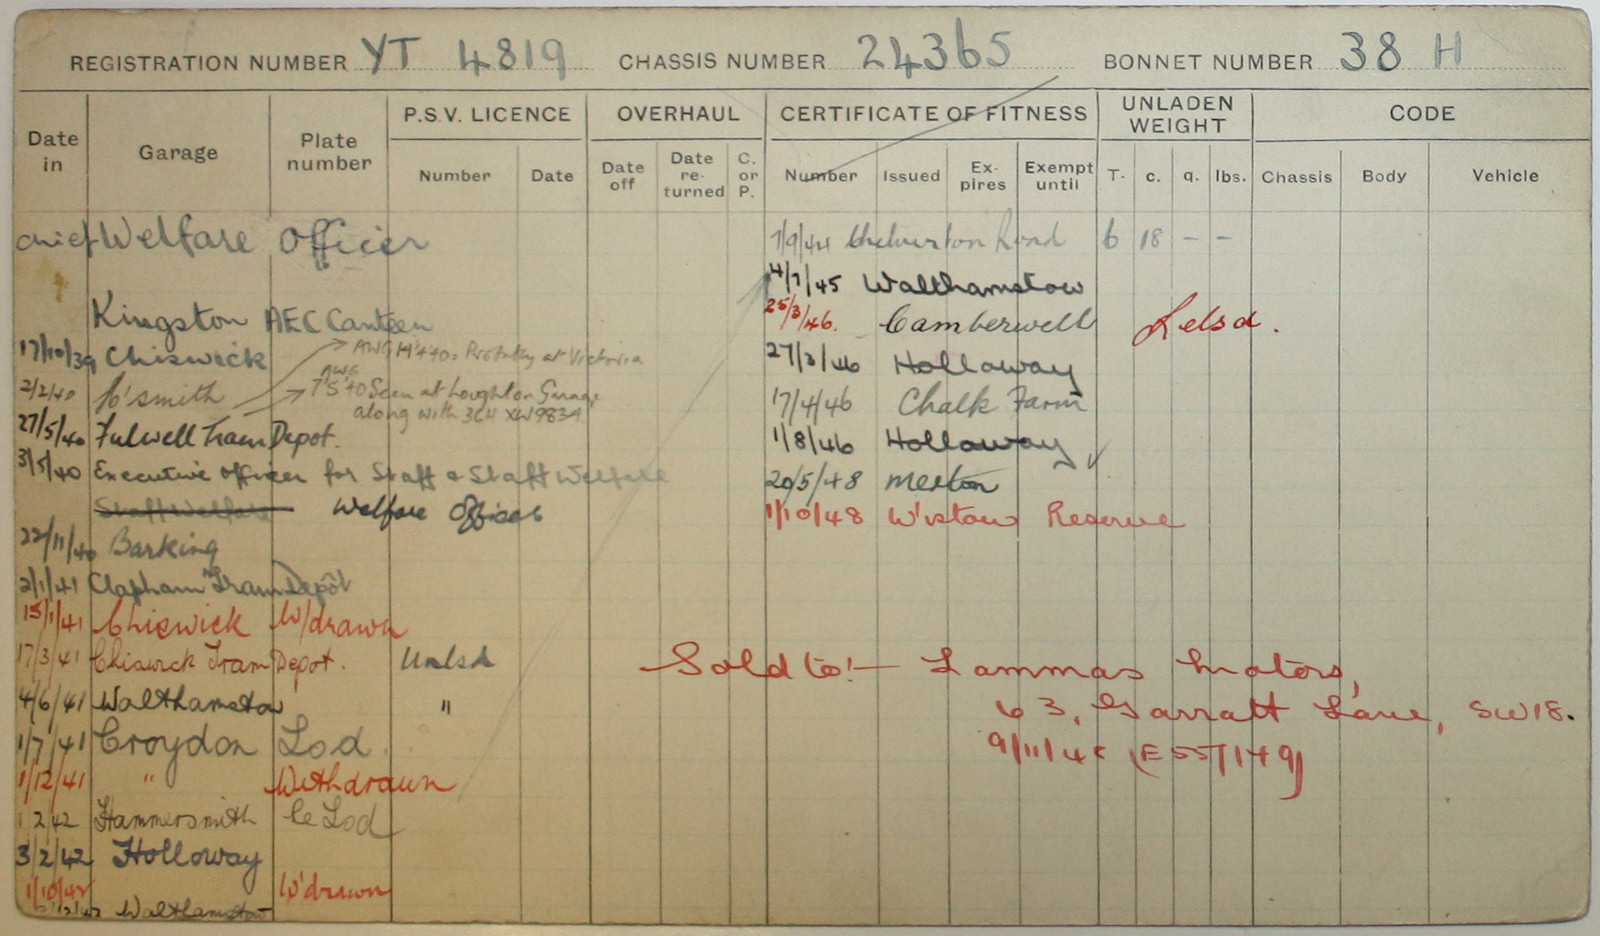 REGISTRATION NUMBER YT 4819 CHASSIS NUMBER 24365 BONNET NUMBER 38 H
Date in Garage Plate number P.S.V. LICENCE OVERHAUL CERTIFICATE OF FITNESS UNLADEN WEIGHT CODE
Number Date Date off Date re-turned C. or P. Number Issued Ex-pires Exempt until T. c. q. lbs. Chassis Body Vehicle
Chief Welfare Officer
Kingston AEC Canteen
17/10/39 Chiswick
AWG 14'4'40 = Probably at Victoria
2/2/40 H'smith
AWG 7'5'40 Seen at Loughton Garage
along with XW9834
27/5/40 Fulwell Tram Depot.
3/5/40 Executive officer for Staff & Staff Welfare
Staff Welfare Welfare Officer
22/11/40 Barking
2/1/41 Clapham Tram Depôt
15/1/41 Chiswick W/drawn
17/3/41 Chiswick Tram Depot. Unlsd
4/6/41 Walthamstow "
1/7/41 Croydon Lsd.
1/12/41 " Withdrawn
1 2 42 Hammersmith Lsd
3/2/42 Holloway
1/10/42 W'drawn
Walthamstow
7/9/44 Chelverton Road 6 18 - -
4/7/45 Walthamstow
25/3/46. Camberwell Lelsd.
27/3/46 Holloway
17/4/46 Chalk Farm
1/8/46 Holloway ✓
20/5/48 Merton
1/10/48 W'stow Reserve
Sold to:- Lammas Motors,
63, Garratt Lane, SW18.
(E55/149)